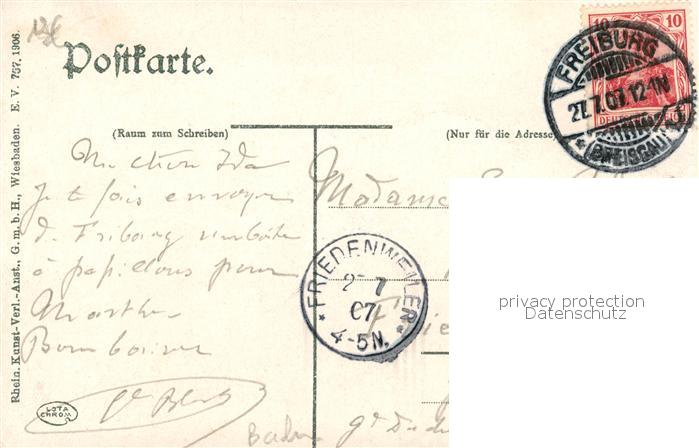 Rhein. Kunst-Verl.-Anst., G. m. b. H., Wiesbaden. E. V. 757, 1906.
Postkarte.
10 10
FREIBURG
27.7.07.12-1N
(BREISGAU)
(Raum zum Schreiben)
(Nur für die Adresse)
Ma chère Ida
Je te fais envoyer
de Fribourg une boîte
à papillons pour
Marthe.
Bon baiser
Madame
FRIEDENWEILER
27 7
07
4-5N.
privacy protection
Datenschutz
LOTA
CHROM
Baden